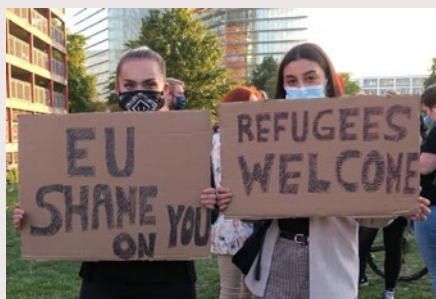 EU
SHAME
ON YOU
REFUGEES
WELCOME